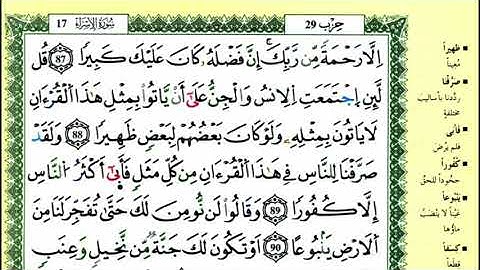 17 سُورَةُ الإِسْرَاءِ
حِزْب 29
إِلَّا رَحْمَةً مِّن رَّبِّكَ إِنَّ فَضْلَهُ كَانَ عَلَيْكَ كَبِيرًا 87 قُل
لَّئِنِ اِجْتَمَعَتِ اِلِانسُ وَالْجِنُّ عَلَىٰ أَنْ يَّاتُوا بِمِثْلِ هَٰذَا اَلْقُرْءَانِ
لَا يَاتُونَ بِمِثْلِهِ وَلَوْ كَانَ بَعْضُهُمْ لِبَعْضٍ ظَهِيرًا 88 وَلَقَدْ
صَرَّفْنَا لِلنَّاسِ فِي هَٰذَا اَلْقُرْءَانِ مِن كُلِّ مَثَلٍ فَأَبَىٰ أَكْثَرُ النَّاسِ
إِلَّا كُفُورًا 89 وَقَالُوا لَن نُّومِنَ لَكَ حَتَّىٰ تُفَجِّرَ لَنَا مِنَ
اَلَارْضِ يَنۢبُوعًا 90 أَوْ تَكُونَ لَكَ جَنَّةٌ مِّن نَّخِيلٍ وَعِنَبٍ
ظهيراً
مُعيناً
صرّفنا
ردّدنا بأساليب
مختلفة
فأبى
فلم يرْض
كُفُوراً
جُحوداً للحقّ
يَنْبُوعاً
عَيْناً لا يَنْضُبُ
ماؤها
كِسَفاً
قِطَعاً